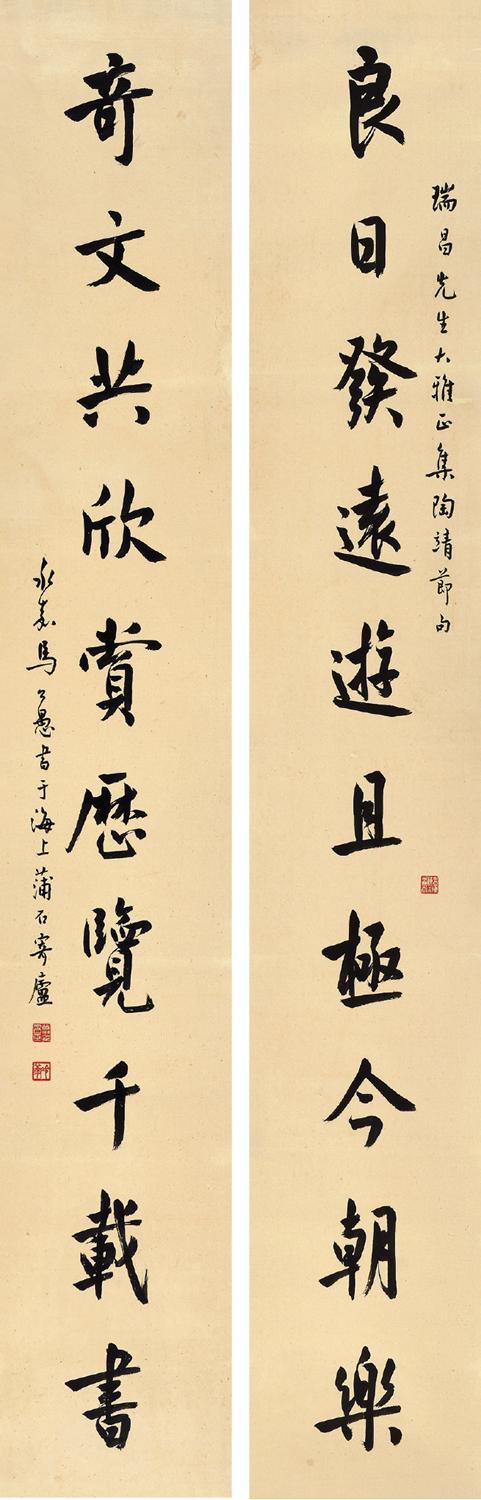 瑞昌先生大雅正集陶靖節句
良日發遠遊且極今朝樂
奇文共欣賞歷覽千載書
永嘉馬公愚書于海上蒲石寄廬